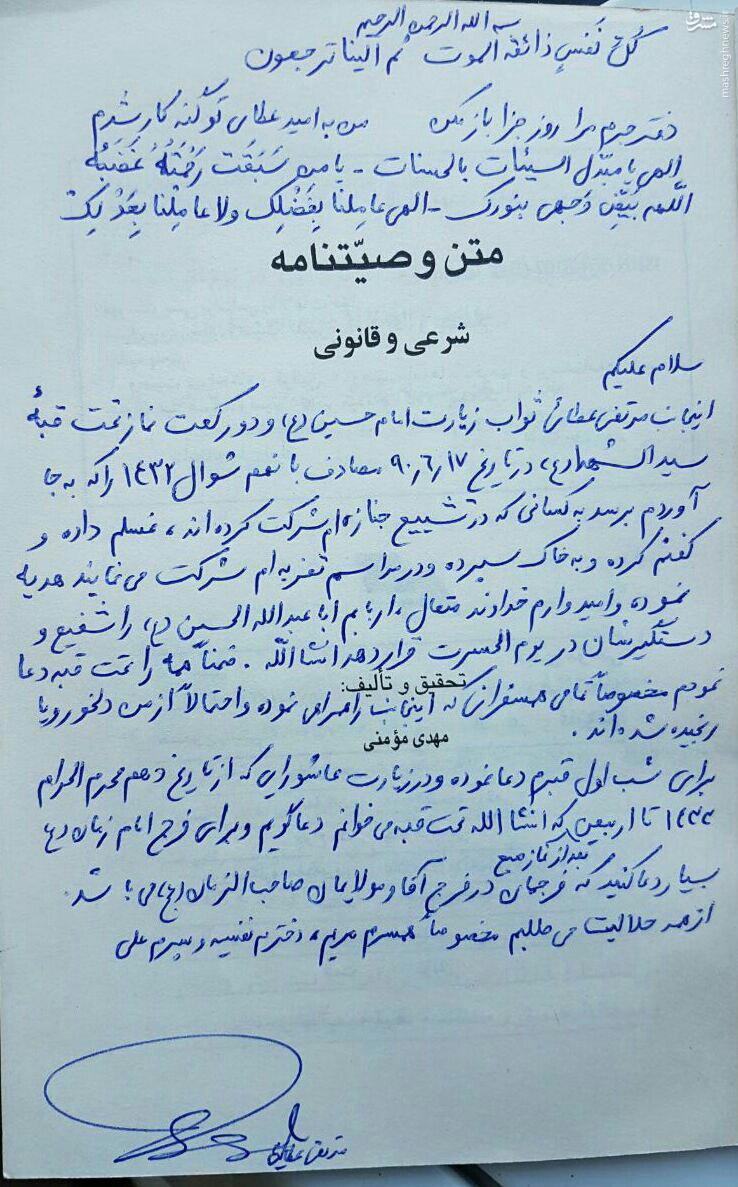 بسم الله الرحمن الرحیم
کُلُّ نَفسٍ ذائقة الموت ثم الینا ترجعون
دفتر جرم مرا روز جزا باز مکن من به امید عطای تو گنه کار شدم
الهی یا مبدّل السیئات بالحسنات - یا من سَبَقَت رَحْمَتُهُ غَضَبُهُ
اللّهم بَیِّض وَجهی بنورک - الهی عامِلنا بِفَضْلِک ولا عامِلْنا بِعَدْلِکْ
متن وصیّتنامه
شرعی و قانونی
سلام علیکم
اینجانب مرتضی عطائی ثواب زیارت امام حسین (ع) و دو رکعت نماز تحت قبهٔ
سید الشهداء (ع) در تاریخ ۹۰/۶/۱۷ مصادف با نهم شوال ۱۴۳۲ را که به جا
آوردم برسد به کسانی که در تشییع جنازه ام شرکت کرده اند، غسلم داده و
کفنم کرده و به خاک سپرده و در مراسم تعزیه ام شرکت می نمایند هدیه
نموده و امیدوارم خداوند متعال، اربابم أبا عبدالله الحسین (ع)، را شفیع و
دستگیرشان در یوم الحسرت قرار دهد انشاالله. ضمناً همه را تحت قبه دعا
نمودم مخصوصاً تمامی همسفرانی که اینجانب را همراهی نموده و احتمالاً از من دلخور و یا
تحقیق و تألیف:
رنجیده شده اند.
مهدی مؤمنی
برای شب اول قبرم دعا نموده و در زیارت عاشورایی که از تاریخ دهم محرم الحرام
۱۴۳۳ تا اربعین که انشا الله تحت قبه می خوانم دعاگویم و برای فرج امام زمان (ع)
بعد از نماز صبح
بسیار دعا کنید که فرجمان در فرج آقا و مولایمان صاحب الزمان (عج) می باشد.
از همه حلالیت می طلبم مخصوصاً همسرم مریم، دخترم نفیسه و پسرم علی
مرتضی عطایی
مشرق
mashreghnews.ir